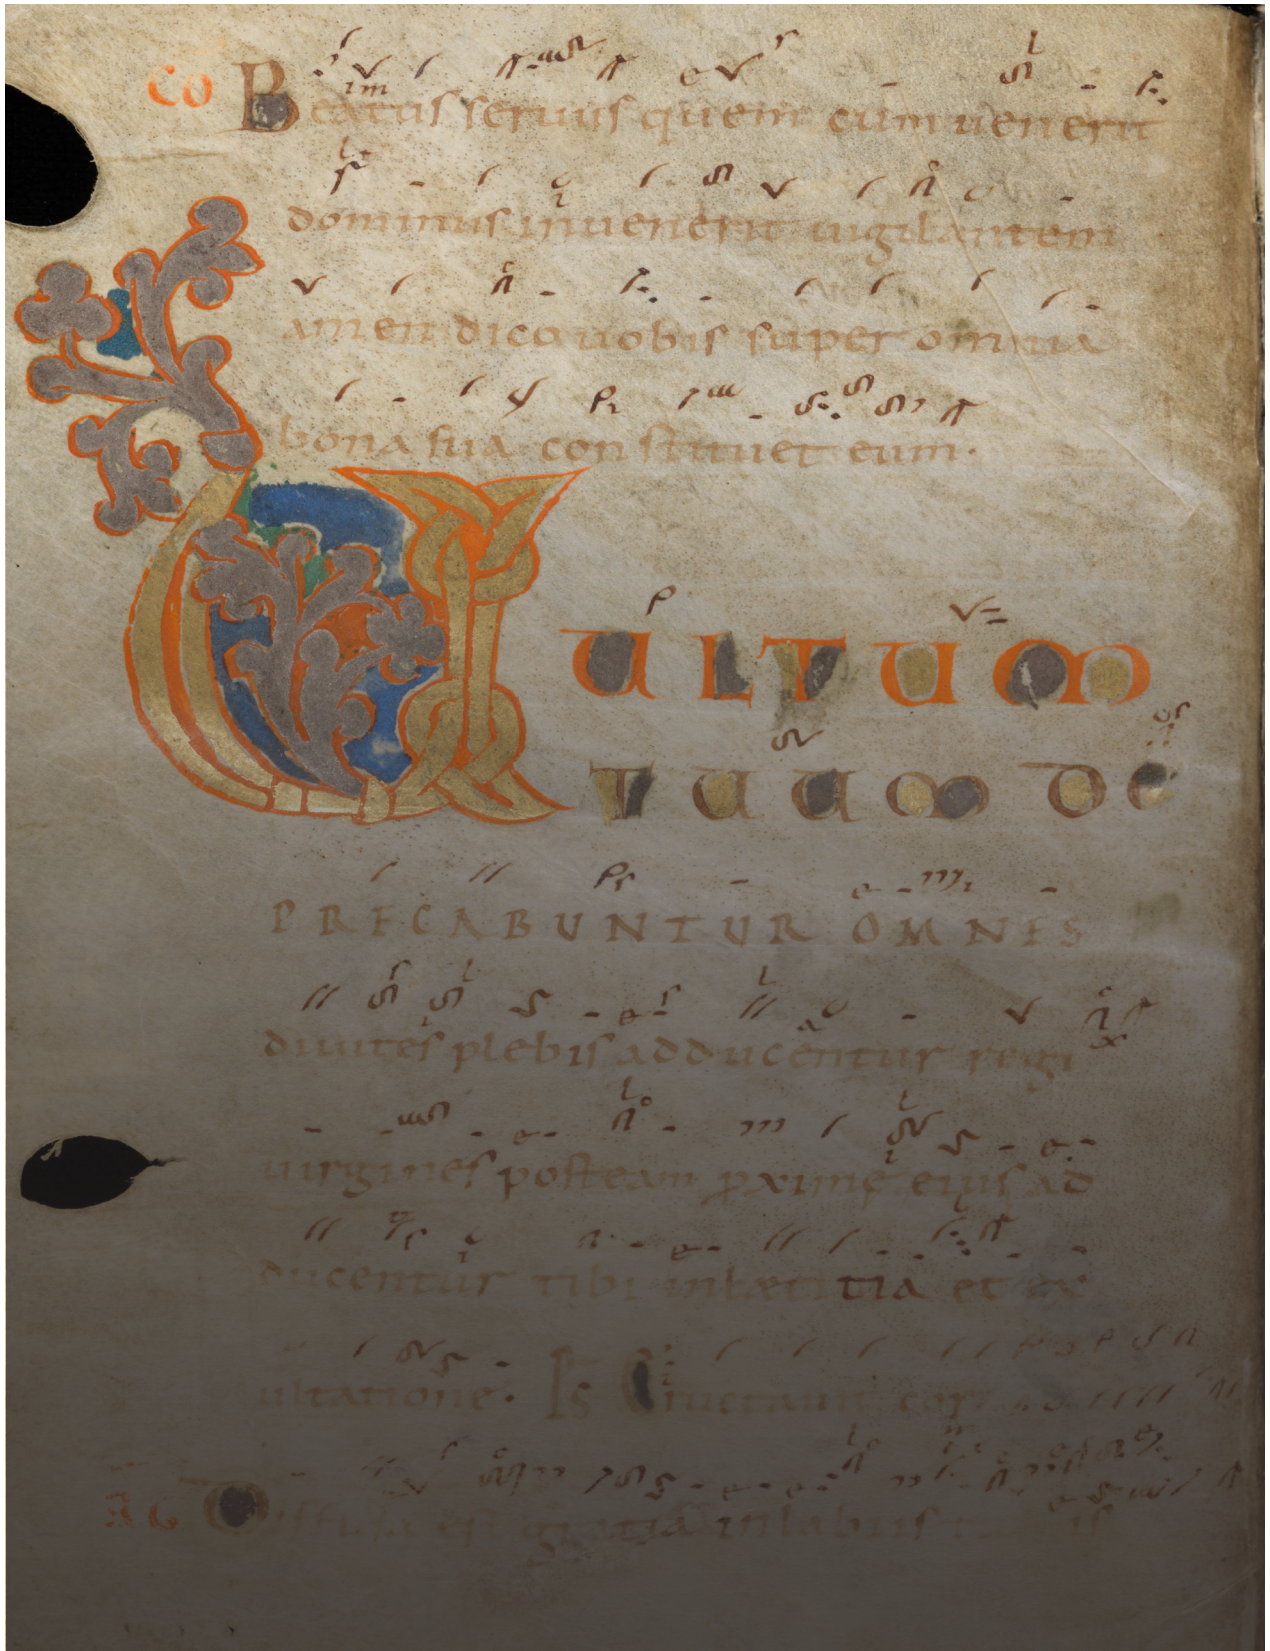 CO Beatus seruus quem cum uenerit
dominus inuenerit uigilantem
amen dico uobis super omnia
bona sua constituet eum.
UULTUM
TUUM DE
PRECABUNTUR OMNES
diuites plebis adducentur regi
uirgines posteam proxime eius ad
ducentur tibi inlætitia et ex
ultatione. Ps Eructauit cor
Diffusa est gratia inlabiis